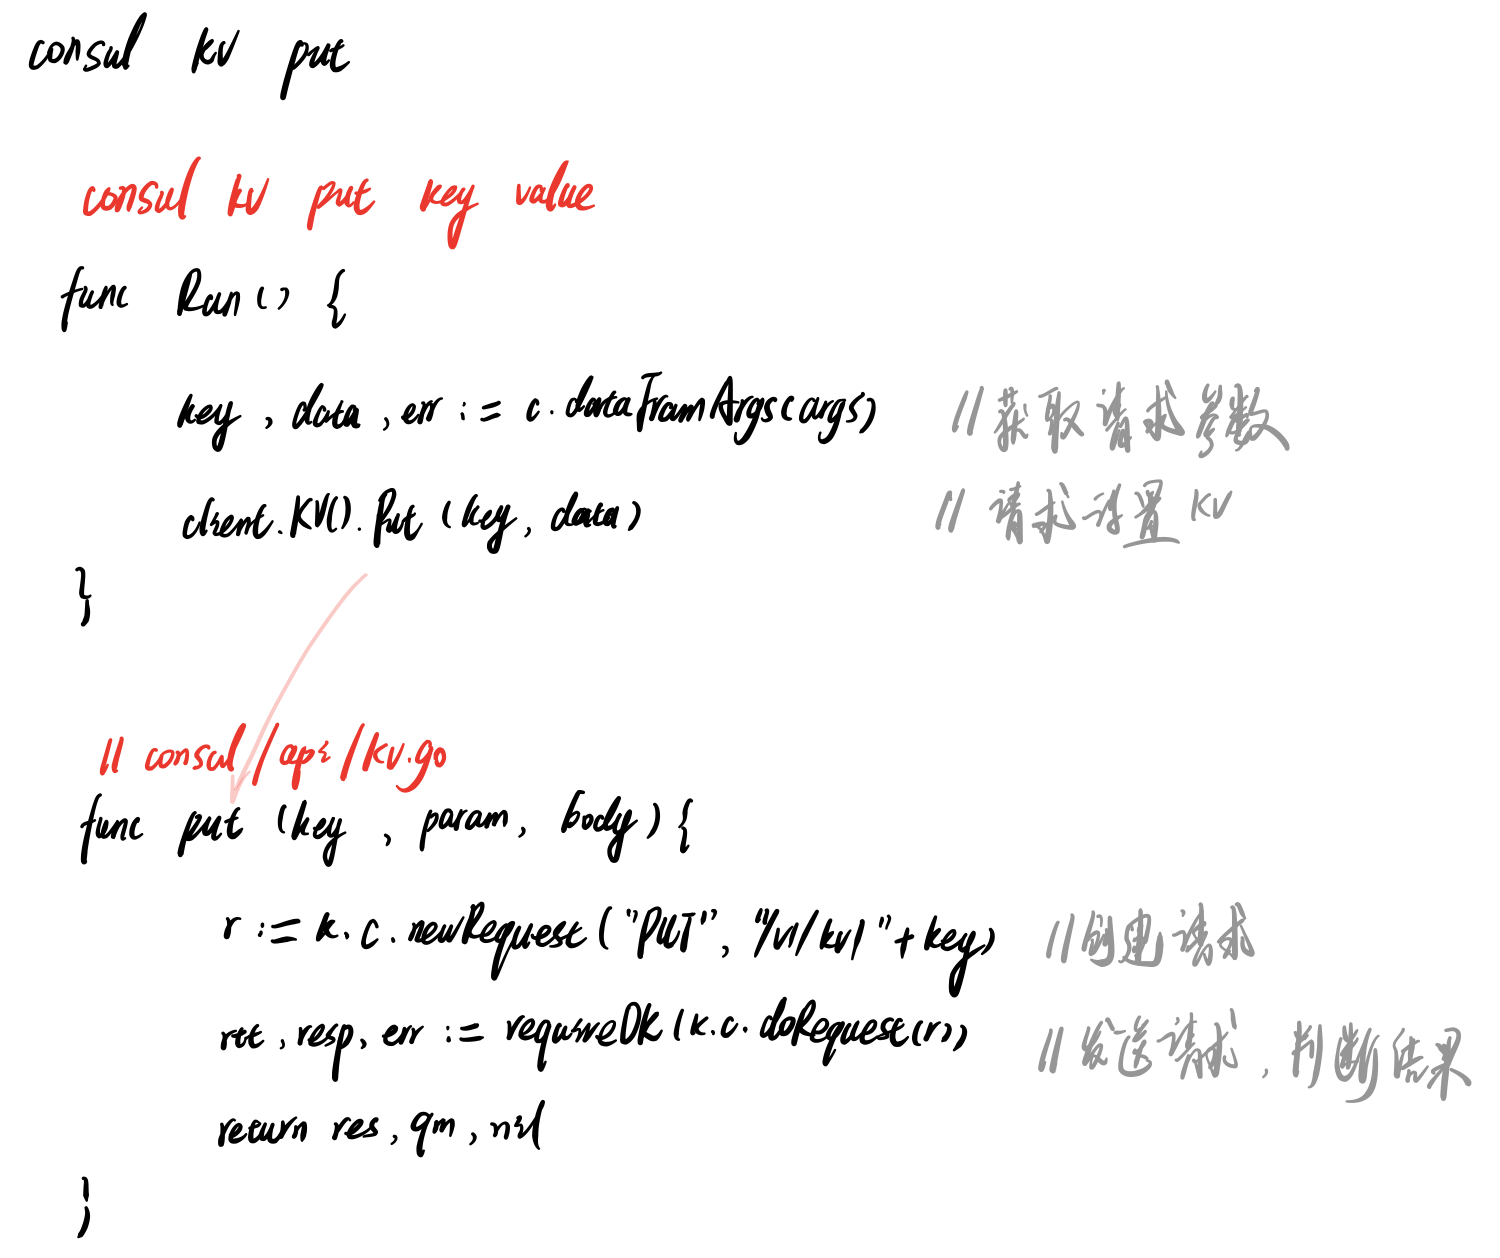 consul kv put
consul kv put key value
func Run() {
key, data, err := c.dataFromArgs(args) //获取请求参数
client.KV().Put(key, data) //请求设置KV
}
// consul/api/kv.go
func put (key, param, body) {
r := k.c.newRequest("PUT", "/v1/kv/"+key) //创建请求
rtt, resp, err := requireOK(k.c.doRequest(r)) //发送请求,判断结果
return res, qm, nil
}